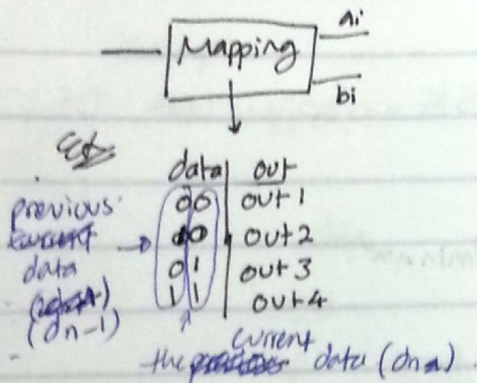 Mapping
ai
bi
data | out
00 | out 1
10 | out 2
01 | out 3
11 | out 4
previous
data
(dn-1)
current
the data (dn)